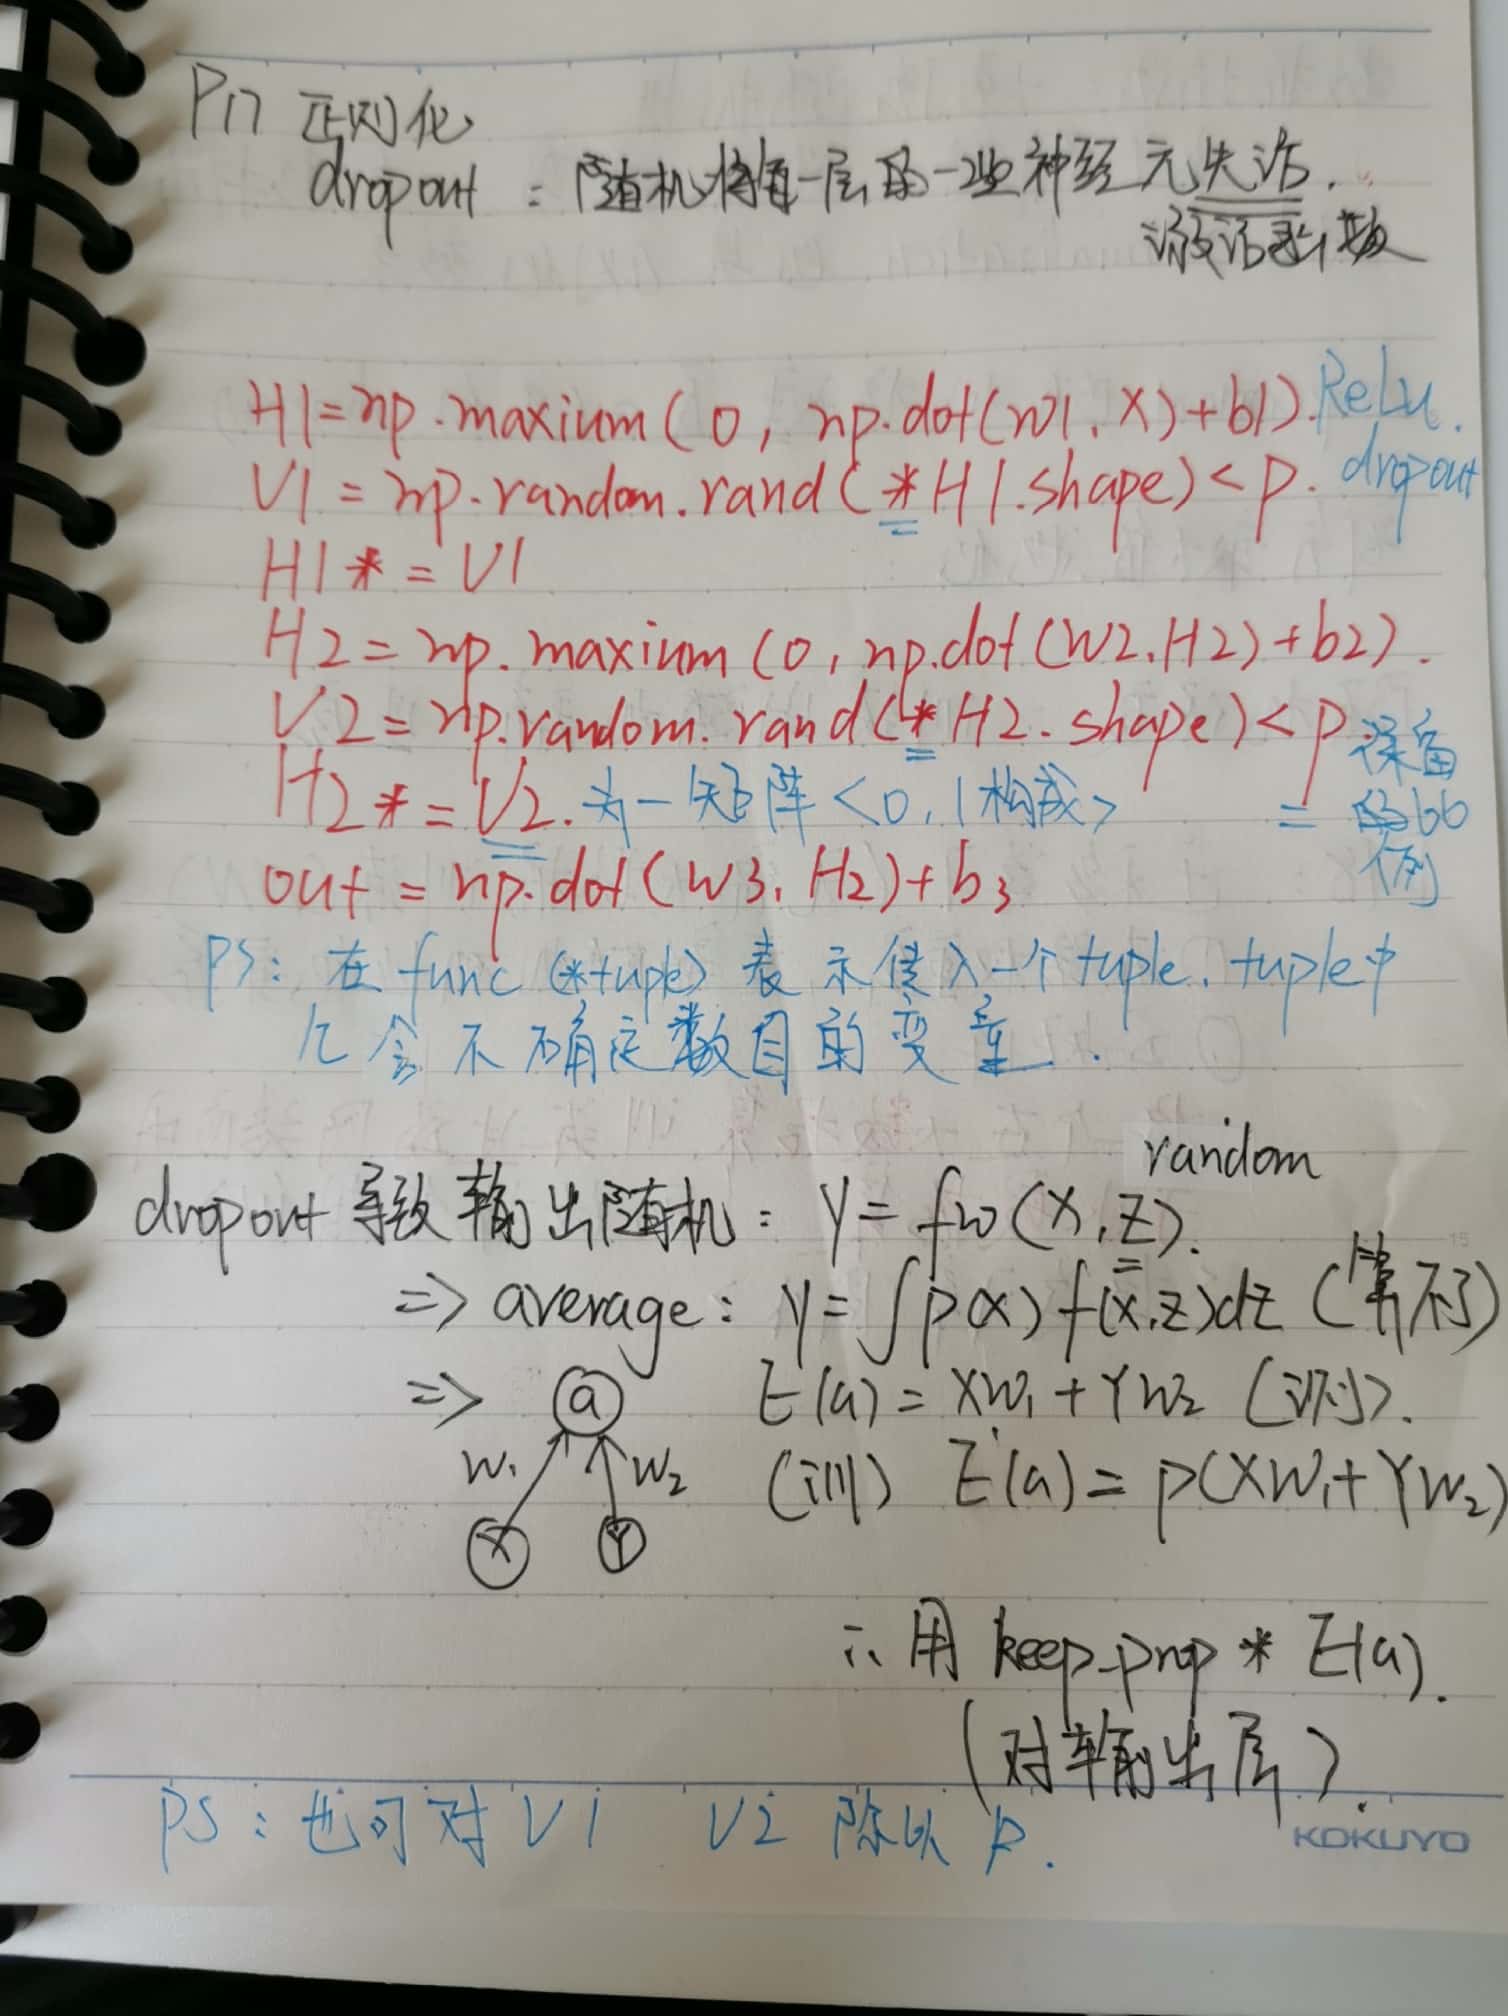 P17 正则化
dropout : 随机将每一层的一些神经元失活.
激活函数
H1=np.maxium(0, np.dot(w1, X)+b1). ReLu.
V1=np.random.rand(*H1.shape)<p. dropout
H1*=V1
H2=np.maxium(0, np.dot(W2,H2)+b2).
V2=np.random.rand(*H2.shape)<p 深备
H2*=V2. 为一矩阵<0,1构成> =的bb
例
out=np.dot(w3, H2)+b3
PS: 在func(*tuple)表示传入一个tuple. tuple中
包含不确定数目的变量.
random
dropout导致输出随机: Y=fw(X,Z).
=> average: y=∫p(x)f(x,z)dz (算不了)
=> a E(a)=XW1+YW2 (测).
W1 W2 (训) E(a)=p(XW1+YW2)
X Y
∴用keep_prop*E(a).
(对输出层).
PS:也可对V1 V2除以p.
KOKUYO